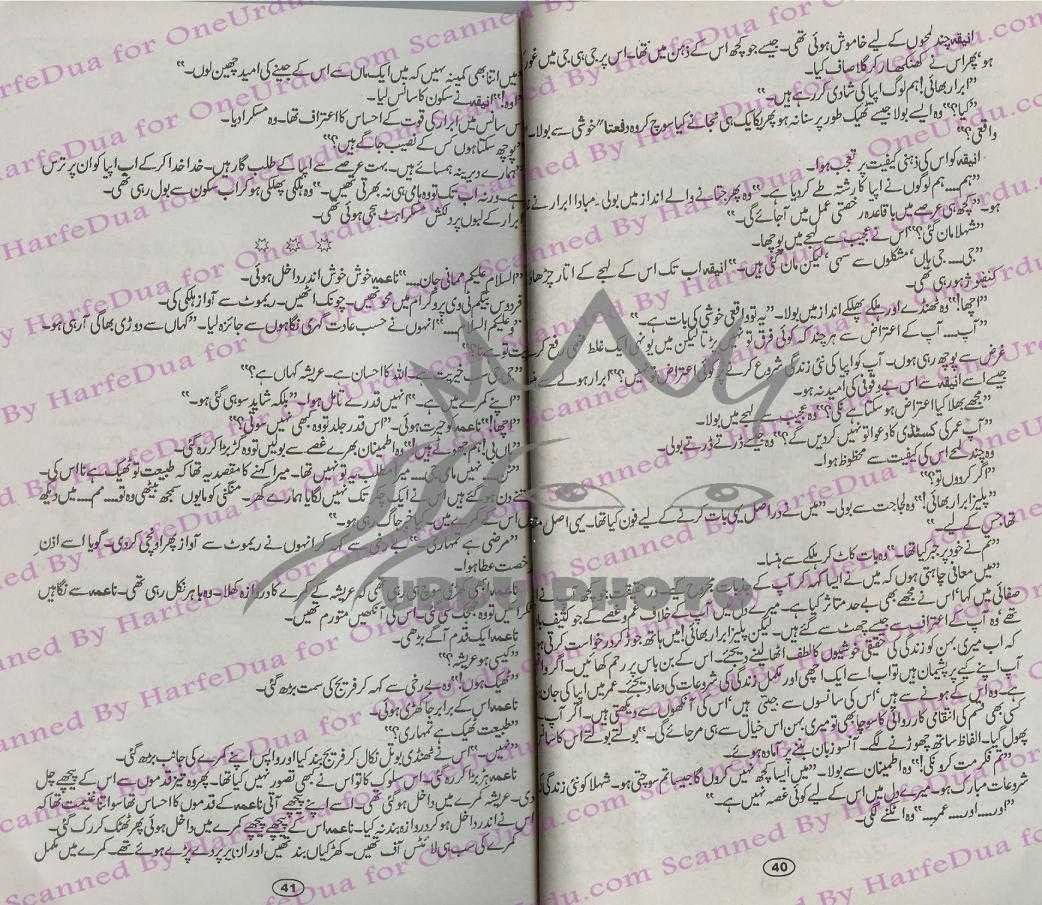 انیقہ چند لمحوں کے لیے خاموش ہوئی تھی۔ جیسے جو کچھ اس کے ذہن میں تھا۔ اس پر جی ہی جی میں غور
ہو پھر اس نے کھنکھار کر گلا صاف کیا۔
"ابرار بھائی! ہم لوگ اپیا کی شادی کر رہے ہیں۔"
"کیا؟" وہ ایسے بولا جیسے ٹھیک طور پر سنا نہ ہو پھر یکایک ہی نجانے کیا سوچ کر وہ دفعتاً خوشی سے بولا۔
واقعی؟"
انیقہ کو اس کی ذہنی کیفیت پر تعجب ہوا۔
"ہم.... ہم لوگوں نے اپیا کا رشتہ طے کر دیا ہے۔" وہ پھر جتانے والے انداز میں بولی۔ مبادا ابرار نے
ہو۔ "کچھ ہی عرصے میں باقاعدہ رخصتی عمل میں آ جائے گی۔"
"شہلا مان گئی؟" اس نے عجیب سے لہجے میں پوچھا۔
"جی.... جی ہاں، مشکلوں سے سہی، لیکن مان گئی ہیں۔" انیقہ اب تک اس کے لہجے کے اتار چڑھاؤ
کنفیوژ ہو رہی تھی۔
"اچھا!" وہ ٹھنڈے اور ہلکے پھلکے انداز میں بولا۔ "یہ تو واقعی خوشی کی بات ہے۔"
"آپ.... آپ کے اعتراض سے ہر چند کہ کوئی فرق تو نہیں پڑتا لیکن میں یونہی ایک غلط فہمی رفع کرنے
غرض سے پوچھ رہی ہوں۔ آپ کو اپیا کی نئی زندگی شروع کرنے پر کوئی اعتراض تو نہیں؟" ابرار ہولے سے
جیسے اسے انیقہ سے اس بے وقوفی کی امید نہ ہو۔
"مجھے بھلا کیا اعتراض ہو سکتا ہے؟" وہ عجیب سے لہجے میں بولا۔
"آپ عمر کی کسٹڈی کا دعوا تو نہیں کر دیں گے؟" وہ جیسے ڈرتے ڈرتے بولی۔
وہ چند لمحے اس کی کیفیت سے محظوظ ہوا۔
"اگر کر دوں تو؟"
"پلیز ابرار بھائی!" وہ لجاجت سے بولی۔ "میں نے دراصل یہی بات کرنے کے لیے فون کیا تھا۔ یہی اصل
تھا جس کے لیے۔"
"تم نے خود پر جبر کیا تھا۔" وہ بات کاٹ کر ہلکے سے ہنسا۔
"میں معافی چاہتی ہوں کہ میں نے ایسا کہہ کر آپ کے
صفائی میں کہا، اس نے مجھے بھی بے حد متاثر کیا ہے۔ میرے دل میں آپ کے خلاف غم و غصے کے جو کثیف
تھے وہ آپ کے اعتراف سے جیسے چھٹ سے گئے ہیں۔ لیکن پلیز ابرار بھائی! میں ہاتھ جوڑ کر درخواست کرتی
کہ اب میری بہن کو زندگی کی حقیقی خوشیوں کا لطف اٹھا لینے دیجئے۔ اس کے بن باس پر رحم کھائیں۔ اگر واقعی
آپ اپنے کیے پر پشیمان ہیں تو اب اسے ایک اچھی اور مکمل زندگی کی شروعات کی دعا دیجئے۔ عمر میں اپیا کی جان
ہے۔ وہ اس کے ہونے سے ہیں، اس کی سانسوں سے جیتی ہیں، اس کی آنکھوں سے دیکھتی ہیں۔ اگر آپ نے
کسی بھی قسم کی انتقامی کارروائی کا سوچا بھی تو میری بہن اس خیال سے ہی مر جائے گی۔" بولتے بولتے اس کا سانس
پھول گیا۔ الفاظ ساتھ چھوڑنے لگے۔ آنسو زبان بننے پر آمادہ ہوئے۔
"تم فکر مت کرو نکی!" وہ اطمینان سے بولا۔ "میں ایسا کچھ نہیں کروں گا جیسا تم سوچتی ہو۔ شہلا کو نئی زندگی کی
شروعات مبارک ہو۔ میرے دل میں اس کے لیے کوئی غصہ نہیں ہے۔"
"اور.... اور.... عمر....." وہ اٹکنے لگی۔
40
میں اتنا بھی کمینہ نہیں کہ میں ایک ماں سے اس کے جینے کی امید چھین لوں۔"
"اوہ!" انیقہ نے سکون کا سانس لیا۔
اس سانس میں ابرار کی قوت کے احساس کا اعتراف تھا۔ وہ مسکرا دیا۔
"پوچھ سکتا ہوں کس کے نصیب جاگے ہیں؟"
"ہمارے دیرینہ ہمسائے ہیں۔ بہت عرصے سے اپیا کے طلب گار ہیں۔ خدا خدا کر کے اب اپیا کو ان پر ترس
ہے۔ ورنہ اب تک تو وہ ہامی ہی نہ بھرتی تھیں۔" وہ ہلکی پھلکی ہو کر اب سکون سے بول رہی تھی۔
ابرار کے لبوں پر دلکش مسکراہٹ سجی ہوئی تھی۔
☼ ☼ ☼
"السلام علیکم ممانی جان....." ناعمہ خوش خوش اندر داخل ہوئی۔
فردوس بیگم ٹی وی پروگرام میں محو تھیں۔ چونک اٹھیں۔ ریموٹ سے آواز ہلکی کی۔
"وعلیکم السلام....." انہوں نے حسب عادت گہری نگاہوں سے جائزہ لیا۔ "کہاں سے دوڑی بھاگی آ رہی ہو۔
خیریت تو ہے نا؟"
"جی سب خیریت ہے۔ اللہ کا احسان ہے۔ عریشہ کہاں ہے؟"
"اپنے کمرے میں ہے۔" انہیں قدرے تامل ہوا۔ "بلکہ شاید سو ہی گئی ہو۔"
"اچھا!" ناعمہ کو حیرت ہوئی۔ "اس قدر جلد تو وہ کبھی نہیں سوتی؟"
"ہاں بی! ہم جھوٹے ہیں!" وہ اطمینان بھرے غصے سے بولیں تو وہ گڑبڑا کر رہ گئی۔
"نن.... نہیں مامی جی.... میرا مطلب یہ تو نہیں تھا۔ میرا کہنے کا مقصد یہ تھا کہ طبیعت تو ٹھیک ہے نا اس کی۔
اتنے دن ہو گئے ہیں اس نے ایک چکر تک نہیں لگایا ہمارے گھر۔ منگنی کو مایوں سمجھ بیٹھی وہ تو.... مم.... میں دیکھ
اسے کمرے میں۔ کیا خبر جاگ رہی ہو۔"
"مرضی ہے تمہاری۔" بے رخی سے کہہ کر انہوں نے ریموٹ سے آواز پھر اونچی کر دی۔ گویا اسے اذنِ
رخصت عطا ہوا۔
ناعمہ ابھی کھڑی سوچ ہی رہی تھی کہ عریشہ کے کمرے کا دروازہ کھلا۔ وہ باہر نکل رہی تھی۔ ناعمہ سے نگاہیں
ملیں تو وہ ٹھٹک سی گئی۔ اس کی آنکھیں متورم تھیں۔
ناعمہ ایک قدم آگے بڑھی۔
"کیسی ہو عریشہ؟"
"ٹھیک ہوں!" وہ بے رخی سے کہہ کر فریج کی سمت بڑھ گئی۔
ناعمہ اس کے برابر جا کھڑی ہوئی۔
"طبیعت ٹھیک ہے تمہاری؟"
"نہیں۔" اس نے ٹھنڈی بوتل نکال کر فریج بند کیا اور واپس اپنے کمرے کی جانب بڑھ گئی۔
ناعمہ ہڑبڑا کر رہ گئی۔ اس سلوک کا تو اس نے کبھی تصور نہیں کیا تھا۔ پھر وہ تیز قدموں سے اس کے پیچھے چل
دی۔ عریشہ کمرے میں داخل ہو گئی تھی۔ اسے اپنے پیچھے آتی ناعمہ کے قدموں کا احساس تھا سو اتنا غنیمت تھا کہ
اس نے اندر داخل ہو کر دروازہ بند نہ کیا۔ ناعمہ اس کے پیچھے پیچھے کمرے میں داخل ہوئی پھر ٹھٹک کر رک گئی۔
کمرے کی سب ہی لائٹس آف تھیں۔ کھڑکیاں بند تھیں اور ان پر پردے پڑے ہوئے تھے۔ کمرے میں مکمل
41
URDU PHOTO
Scanned By HarfeDua for OneUrdu.com